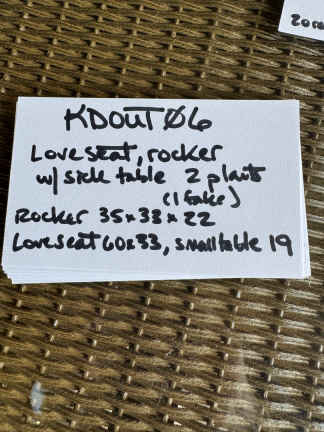 20 co
KDOUT Ø6
Loveseat, rocker
w/ side table 2 plants
(1 fake)
Rocker 35x33x22
Loveseat 60x33, small table 19